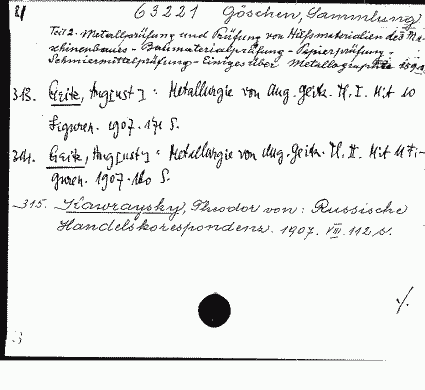 63221 Göschen, Sammlung
Teil 2. Metallprüfung und Prüfung von Hilfsmaterialien des Ma-
schinenbaues - Baumaterialprüfung - Papierprüfung -
Schmiermittelprüfung - Einiges über Metallographie
313. Geitz, Aug[ust]: Metallurgie von Aug. Geitz. T. I. Mit 10
Figuren. 1907. 171 S.
314. Geitz, Aug[ust]: Metallurgie von Aug. Geitz. T. II. Mit 11 Fi-
guren. 1907. 180 S.
315. Kawraysky, Theodor von: Russische
Handelskorrespondenz. 1907. VIII. 112 S.
./.